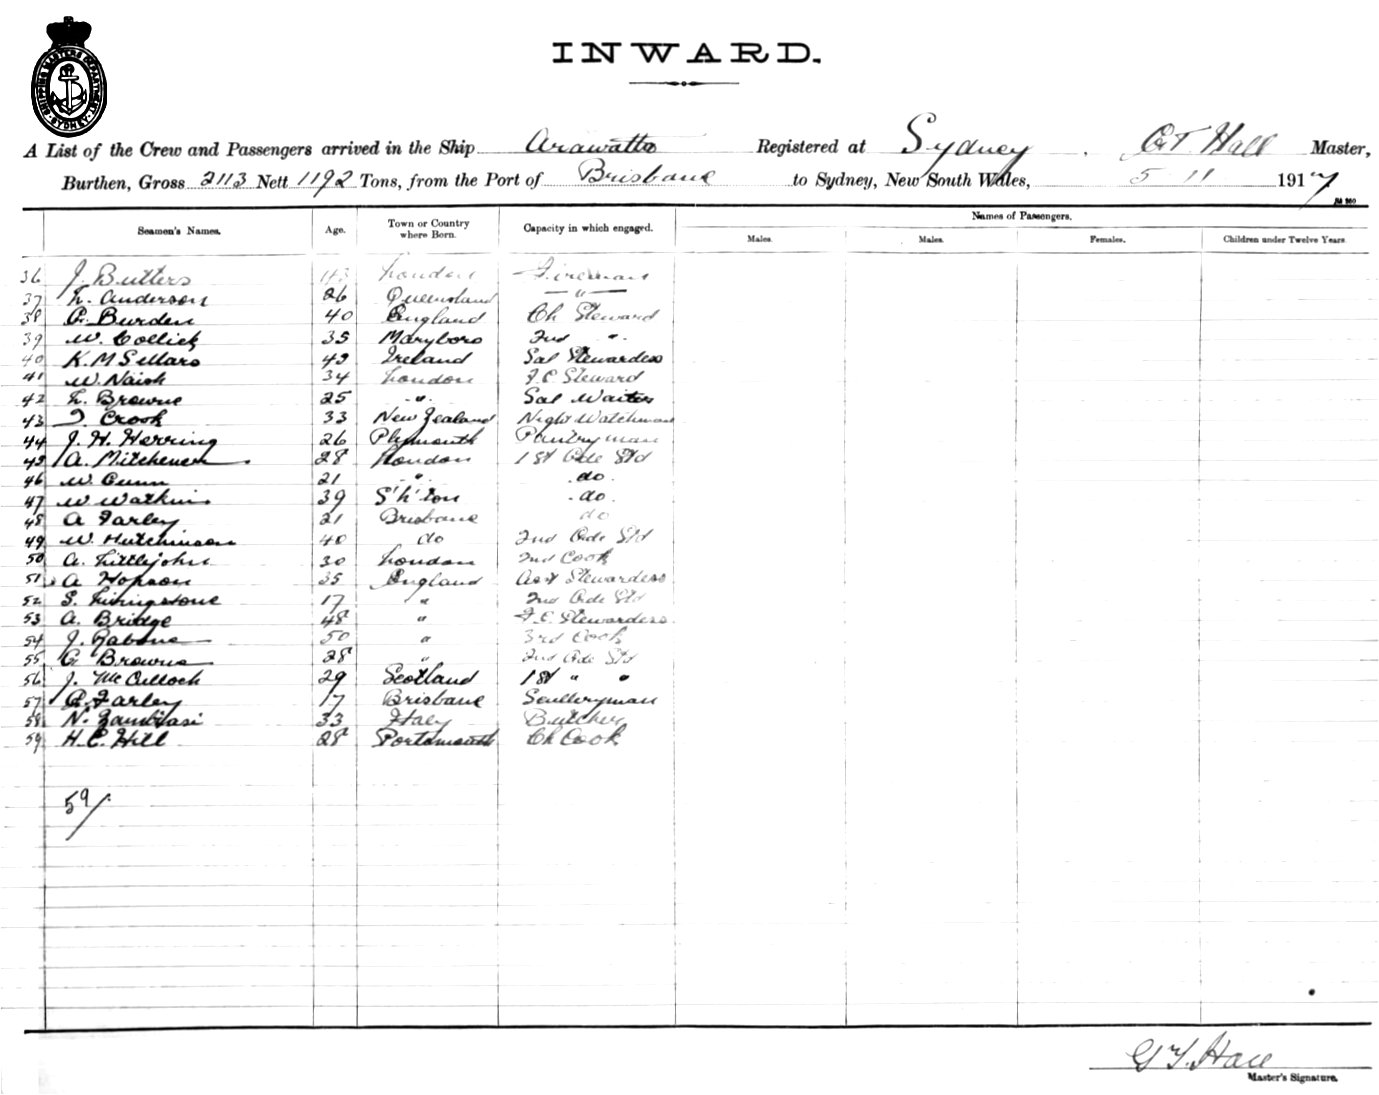 SHIPPING MASTERS DEPARTMENT SYDNEY
INWARD.
A List of the Crew and Passengers arrived in the Ship Arawatta Registered at Sydney. G T Hall Master,
Burthen, Gross 2113 Nett 1192 Tons, from the Port of Brisbane to Sydney, New South Wales, 5 11 1917
Seamen's Names. Age. Town or Country where Born. Capacity in which engaged. Names of Passengers.
Males. Males. Females. Children under Twelve Years.
36 J. Butters 43 London Fireman
37 L. Anderson 26 Queensland — " —
38 G. Burden 40 England Ch Steward
39 W. Collick 35 Maryboro 2nd "
40 K. M Sellars 42 Ireland Sal Stewardess
41 W. Naish 34 London F.C. Steward
42 L. Browne 25 " Sal Waiter
43 J. Crook 33 New Zealand Night Watchman
44 J. H. Herring 26 Plymouth Pantryman
45 A. Mitchener 28 London 1st Cde Std
46 W. Gunn 21 " do.
47 W Watkins 39 S'h'ton do.
48 A Farley 21 Brisbane do
49 W. Hutchinson 40 do 2nd Cde Std
50 A. Littlejohn 30 London 2nd Cook
51 A Hopson 35 England Asst Stewardess
52 S. Livingstone 17 " 2nd Cde Std
53 A. Bridge 48 " F.C. Stewardess.
54 J. Rabone 50 " 3rd Cook
55 G. Browne 28 " 2nd Cde Std
56 J. McCulloch 29 Scotland 1st " "
57 G. Farley 17 Brisbane Sculleryman
58 N. Zambiasi 33 Italy Butcher
59 H. C. Hill 28 Portsmouth Ch Cook
59/.
G T. Hall
Master's Signature.